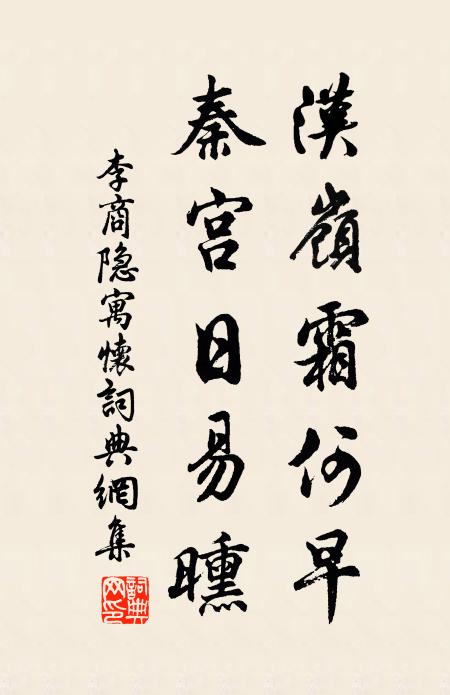 漢嶺霜何早
秦宫日易曛
李商隐寓懷詞典網集
詞典
网印